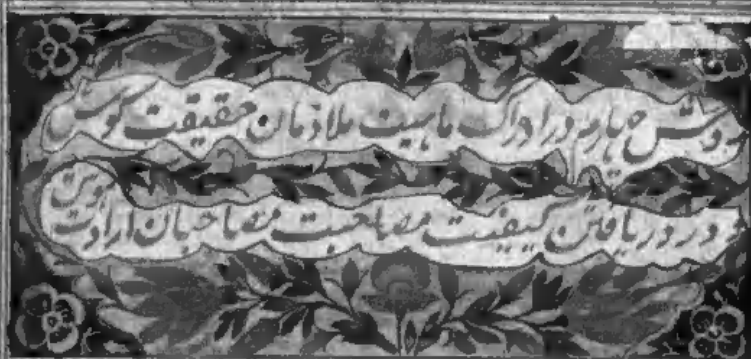 روش چهارم در ادراک ماهیت ملازمان حقیقت کوش
و در دریافتن کیفیت مصاحبت مصاحبان ارادت